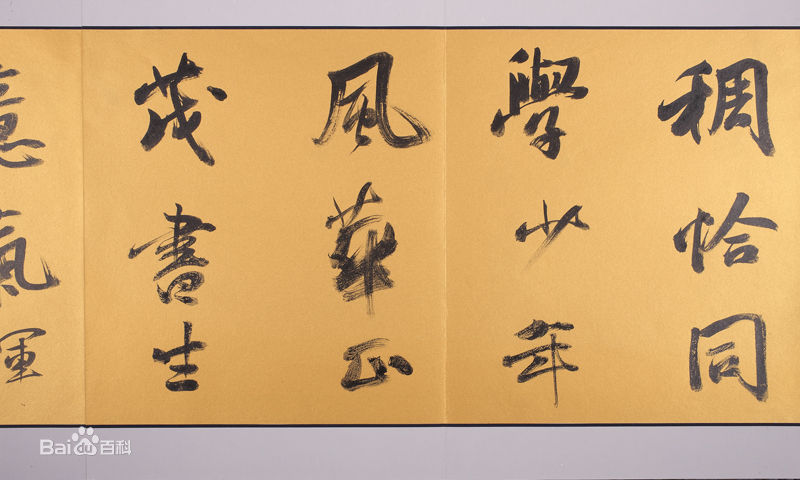 稠恰同
學少年
風華正
茂書生
意氣揮
Bai du 百科